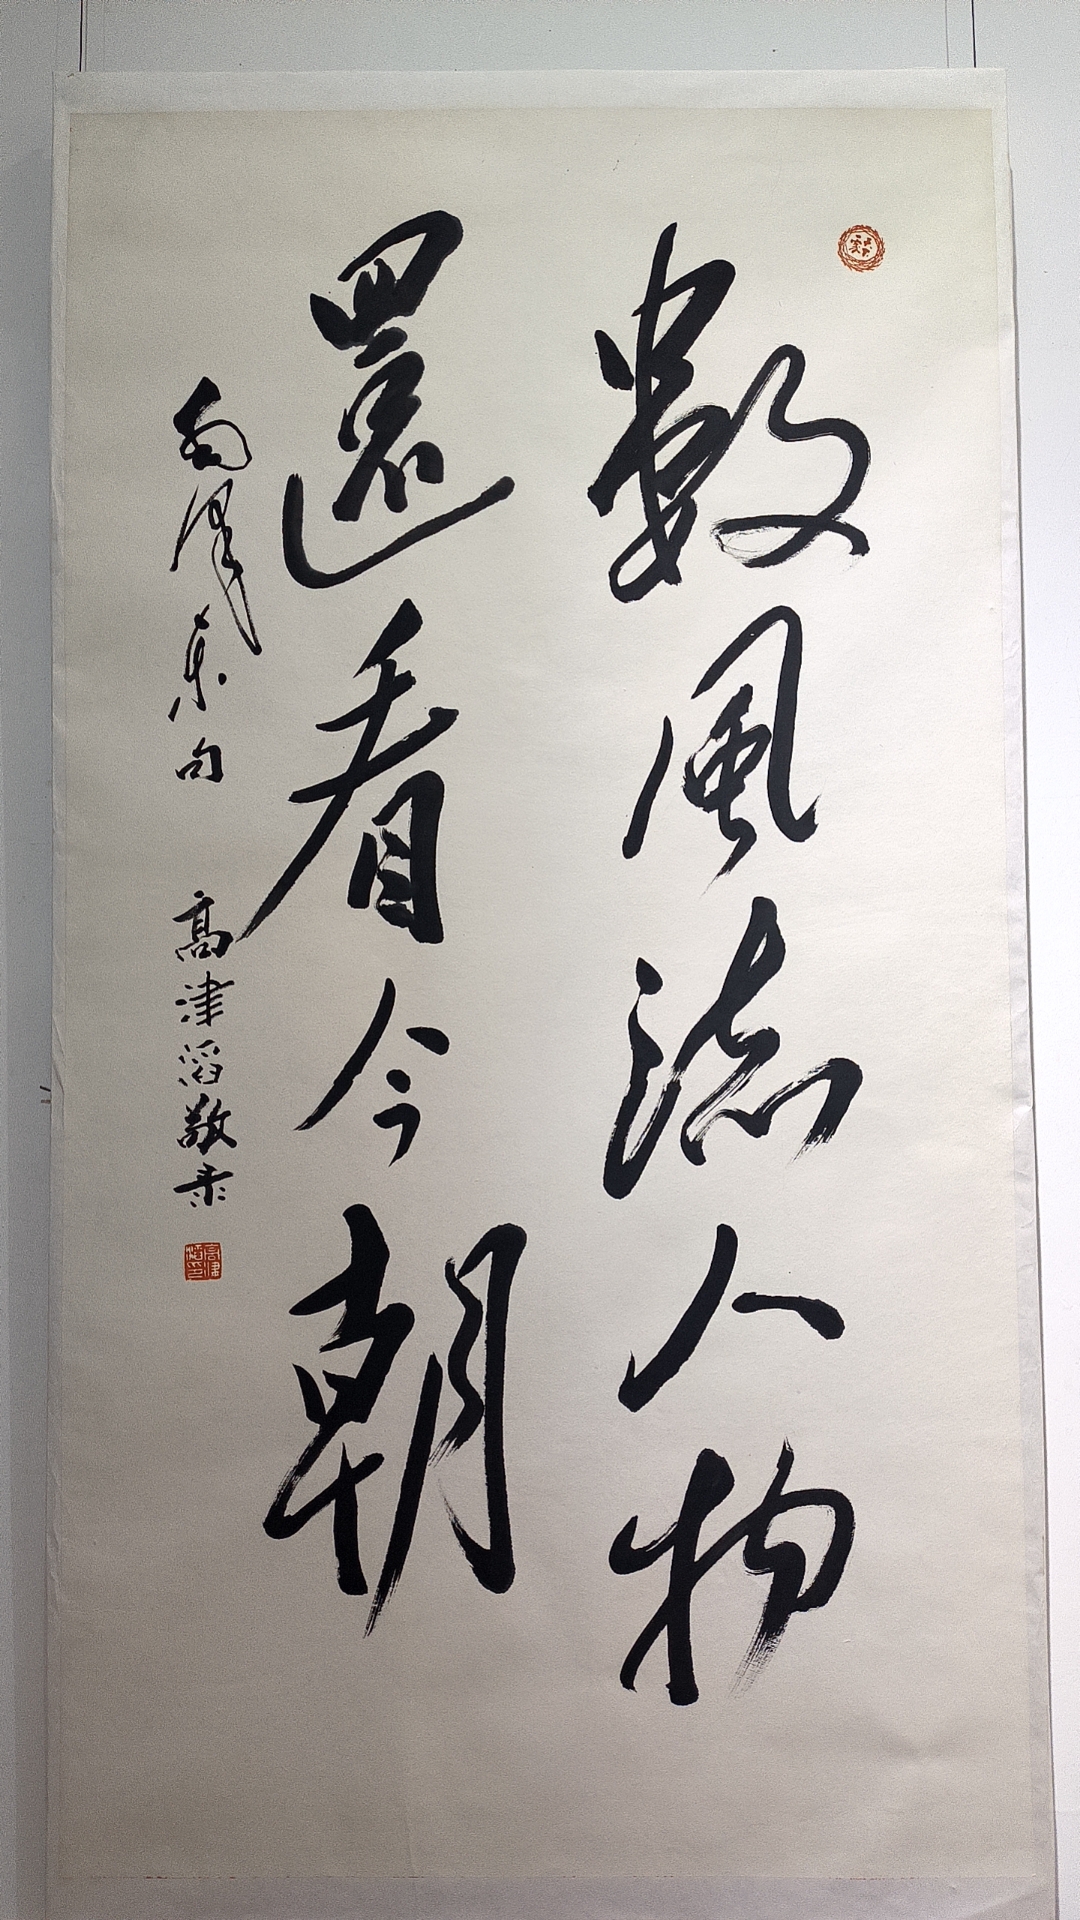 數風流人物
還看今朝
毛泽东句 高津滔敬录
高津滔印